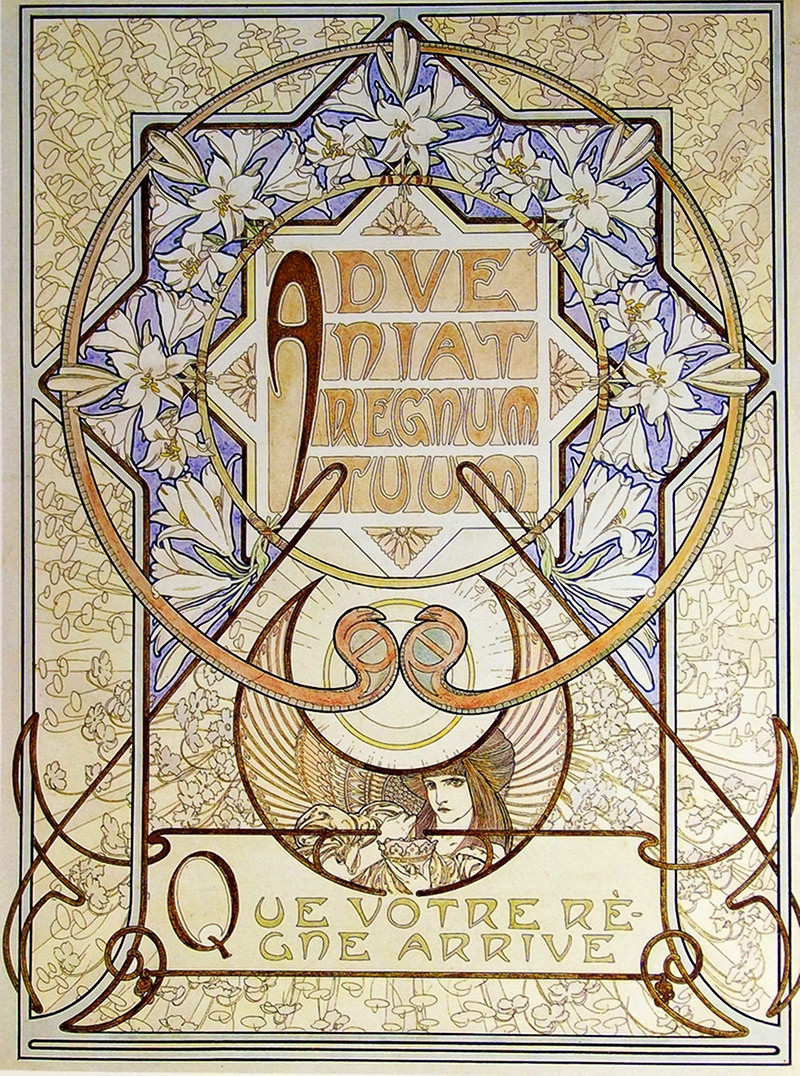 ADVE
NIAT
REGNUM
TUUM
QUE VOTRE RÈ-
GNE ARRIVE